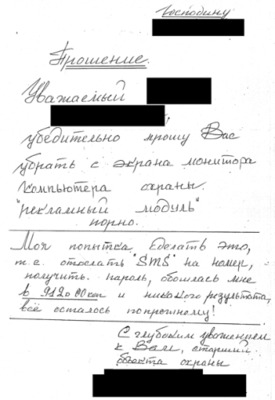 Господину
Прошение.
Уважаемый
убедительно прошу Вас
убрать с экрана монитора
компьютера охраны.
"рекламный модуль"
порно.
Моя попытка сделать это,
т.е. отослать "SMS" на номер,
получить пароль, обошлась мне
в и никакого результата,
всё осталось попрежнему!
С глубоким уважением
к Вам, старший
объекта охраны